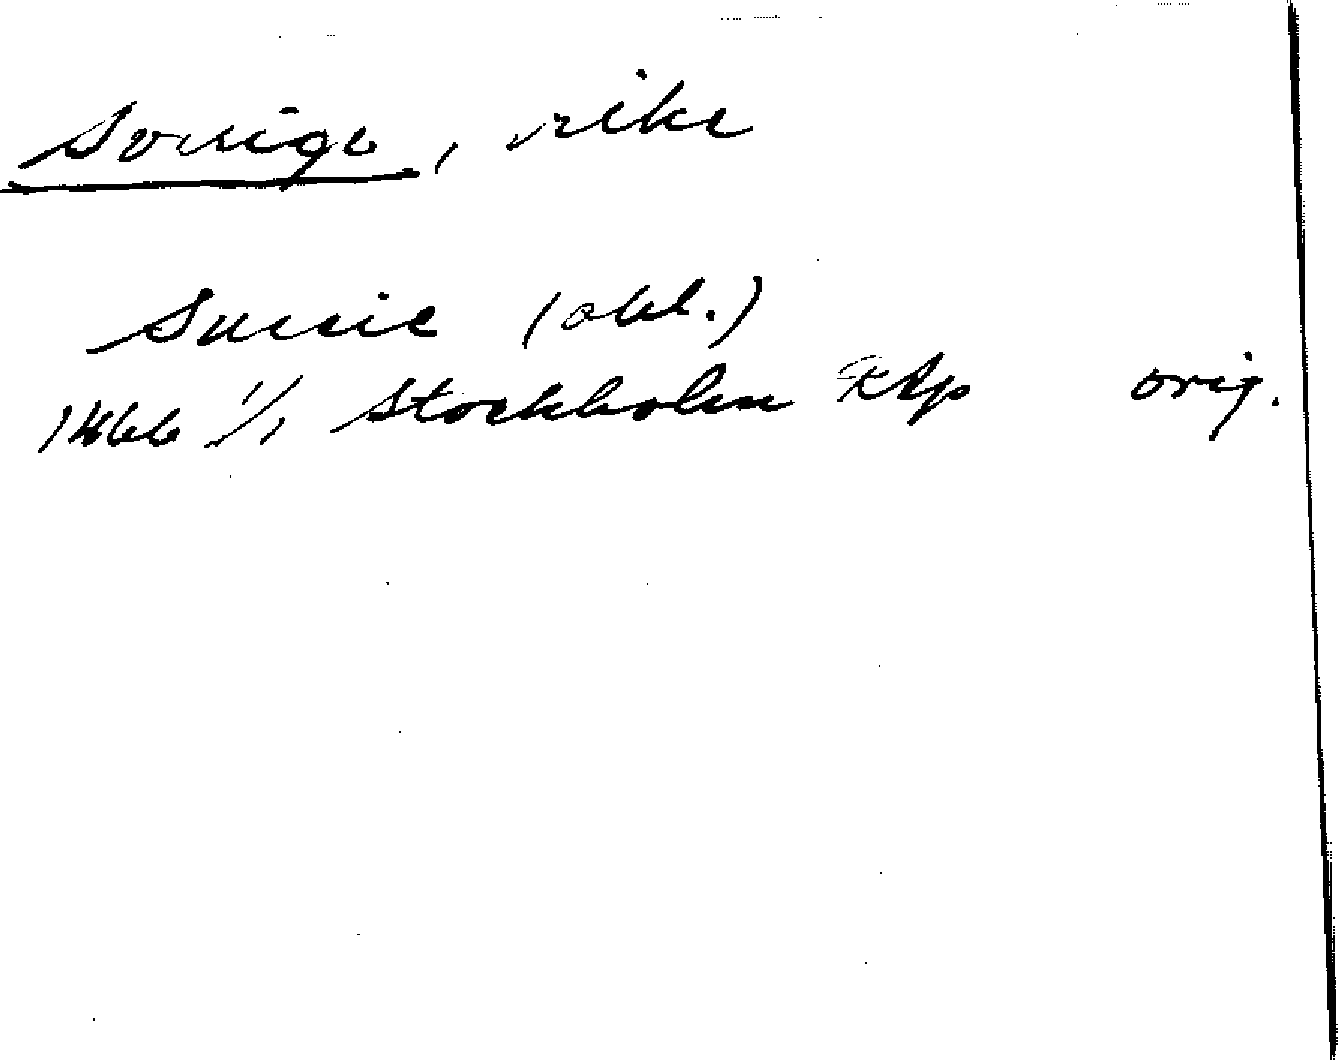 Sverige, rike
Suecie (obl.)
1466 1/1 Stockholm RAp orig.